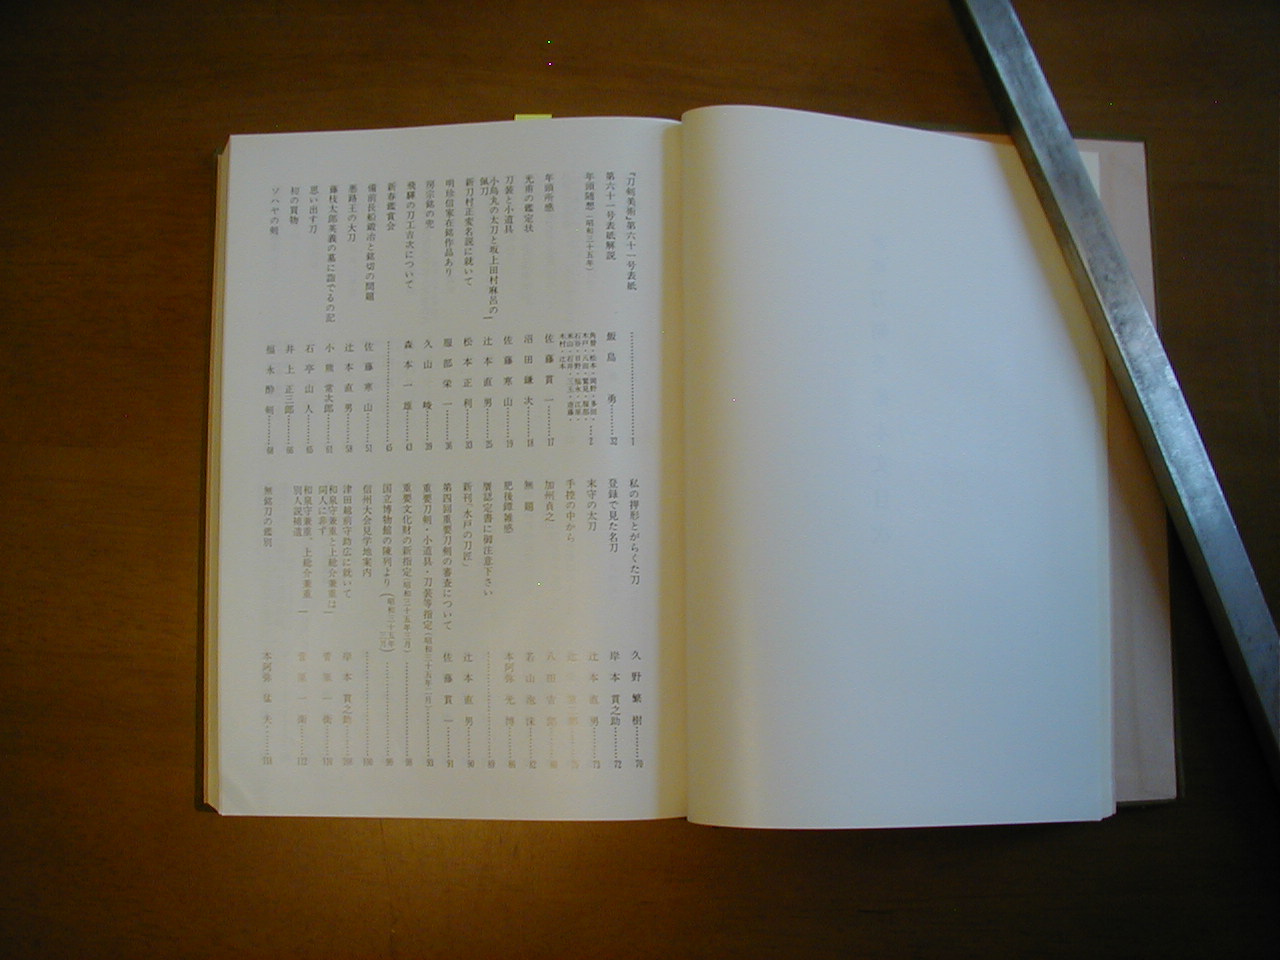 『刀剣美術』第六十一号表紙……………1
第六十一号表紙解説 飯島 勇……32
年頭随想(昭和三十五年)
年頭所感 佐藤貫一……17
光甫の鑑定状 沼田鎌次……18
刀装と小道具 佐藤寒山……19
小烏丸の太刀と坂上田村麻呂の佩刀 辻本直男……25
新刀村正変名説に就いて 松本正利……33
明珍信家在銘作品あり 服部栄一……36
房宗銘の兜 久山 峻……39
飛騨の刀工吉次について 森本一雄……43
新春鑑賞会……………45
備前長船鍛冶と銘切の問題 佐藤寒山……51
悪路王の大刀 辻本直男……58
藤枝太郎英義の墓に詣でるの記 小熊常次郎……62
思い出す刀 石亭山人……65
初の買物 井上正三郎……66
ソハヤの剣 福永酔剣……68
私の押形とがらくた刀 久野繁樹……70
登録で見た名刀 岸本貫之助……72
末守の太刀 辻本直男……73
手控の中から
加州貞之
無題 若山泡沫……82
肥後鐔雑感 本阿弥光博……86
贋認定書に御注意下さい……89
新刊「水戸の刀匠」 辻本直男……90
第四回重要刀剣の審査について 佐藤貫一……91
重要刀剣・小道具・刀装等指定(昭和三十五年二月)……93
重要文化財の新指定(昭和三十五年三月)……98
国立博物館の陳列より(昭和三十五年三月)……99
信州大会見学地案内……100
津田越前守助広に就いて 岸本貫之助
和泉守兼重と上総介兼重は同人に非ず 一衛
和泉守兼重、上総介兼重別人説補遺 一衛……132
無銘刀の鑑別 本阿弥猛夫